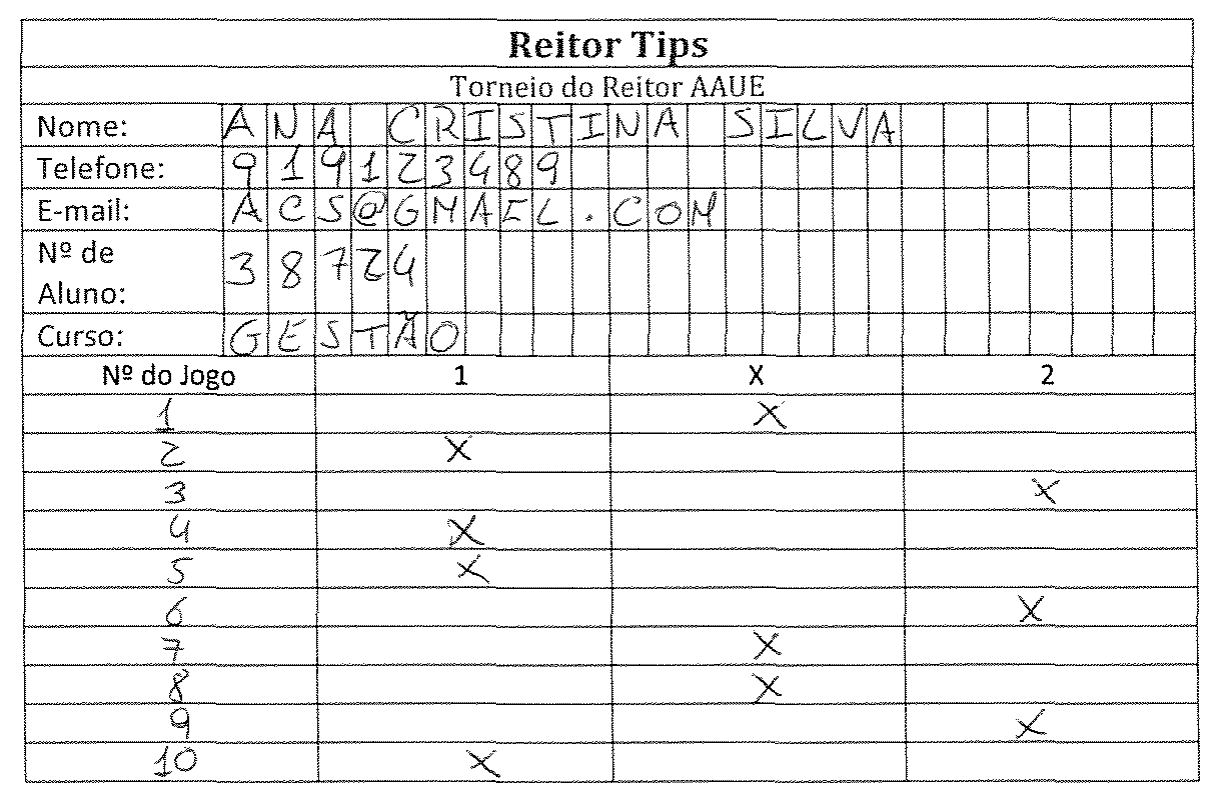 Reitor Tips
Torneio do Reitor AAUE
Nome: ANA CRISTINA SILVA
Telefone: 919123489
E-mail: ACS@GMAEL.COM
Nº de Aluno: 38724
Curso: GESTÃO
Nº do Jogo 1 X 2
1 X
2 X
3 X
4 X
5 X
6 X
7 X
8 X
9 X
10 X